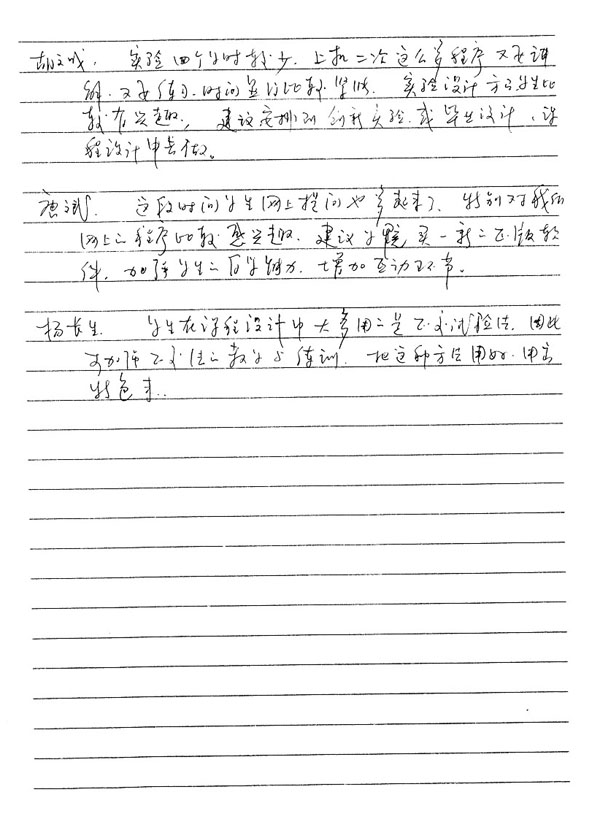 胡文战. 实验四个学时较少. 上机二次这么多程序又要讲
解. 又要练习. 时间显得比较紧张. 实验设计方面学生比
较有兴趣, 建议安排到创新实验. 或毕业设计、课
程设计中去做。
唐斌. 这段时间学生网上提问也多起来了. 特别对我们
网上的程序比较感兴趣. 建议学院买一新的正版软
件, 加强学生的自学能力. 增加互动环节。
杨长生. 学生在课程设计中大多用的是正交试验法. 因此
要加强正交法的教学与培训. 把这种方法用好. 用出
特色来.